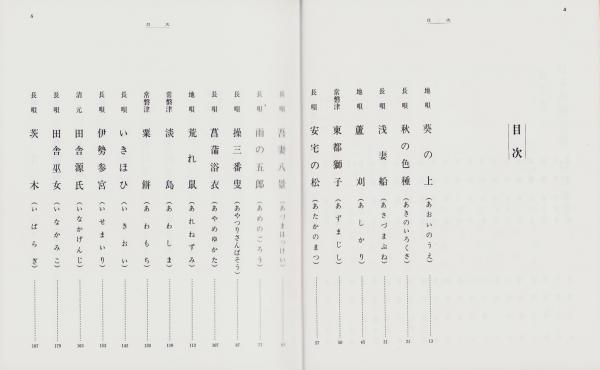 4
目次
目次
地唄 葵の上 (あおいのうえ) 13
長唄 秋の色種 (あきのいろくさ) 21
長唄 浅妻船 (あさづまぶね) 31
地唄 蘆刈 (あしかり) 45
常磐津 東都獅子 (あずまじし) 50
長唄 安宅の松 (あたかのまつ) 57
5
目次
長唄 吾妻八景 (あづまはっけい)
長唄 雨の五郎 (あめのごろう) 77
長唄 操三番叟 (あやつりさんばそう) 87
長唄 菖蒲浴衣 (あやめゆかた) 107
地唄 荒れ鼠 (あれねずみ) 113
常磐津 淡島 (あわしま) 120
常磐津 粟餅 (あわもち) 130
長唄 いきほひ (いきおい) 142
長唄 伊勢参宮 (いせまいり) 153
清元 田舎源氏 (いなかげんじ) 163
長唄 田舎巫女 (いなかみこ) 179
長唄 茨木 (いばらぎ) 187